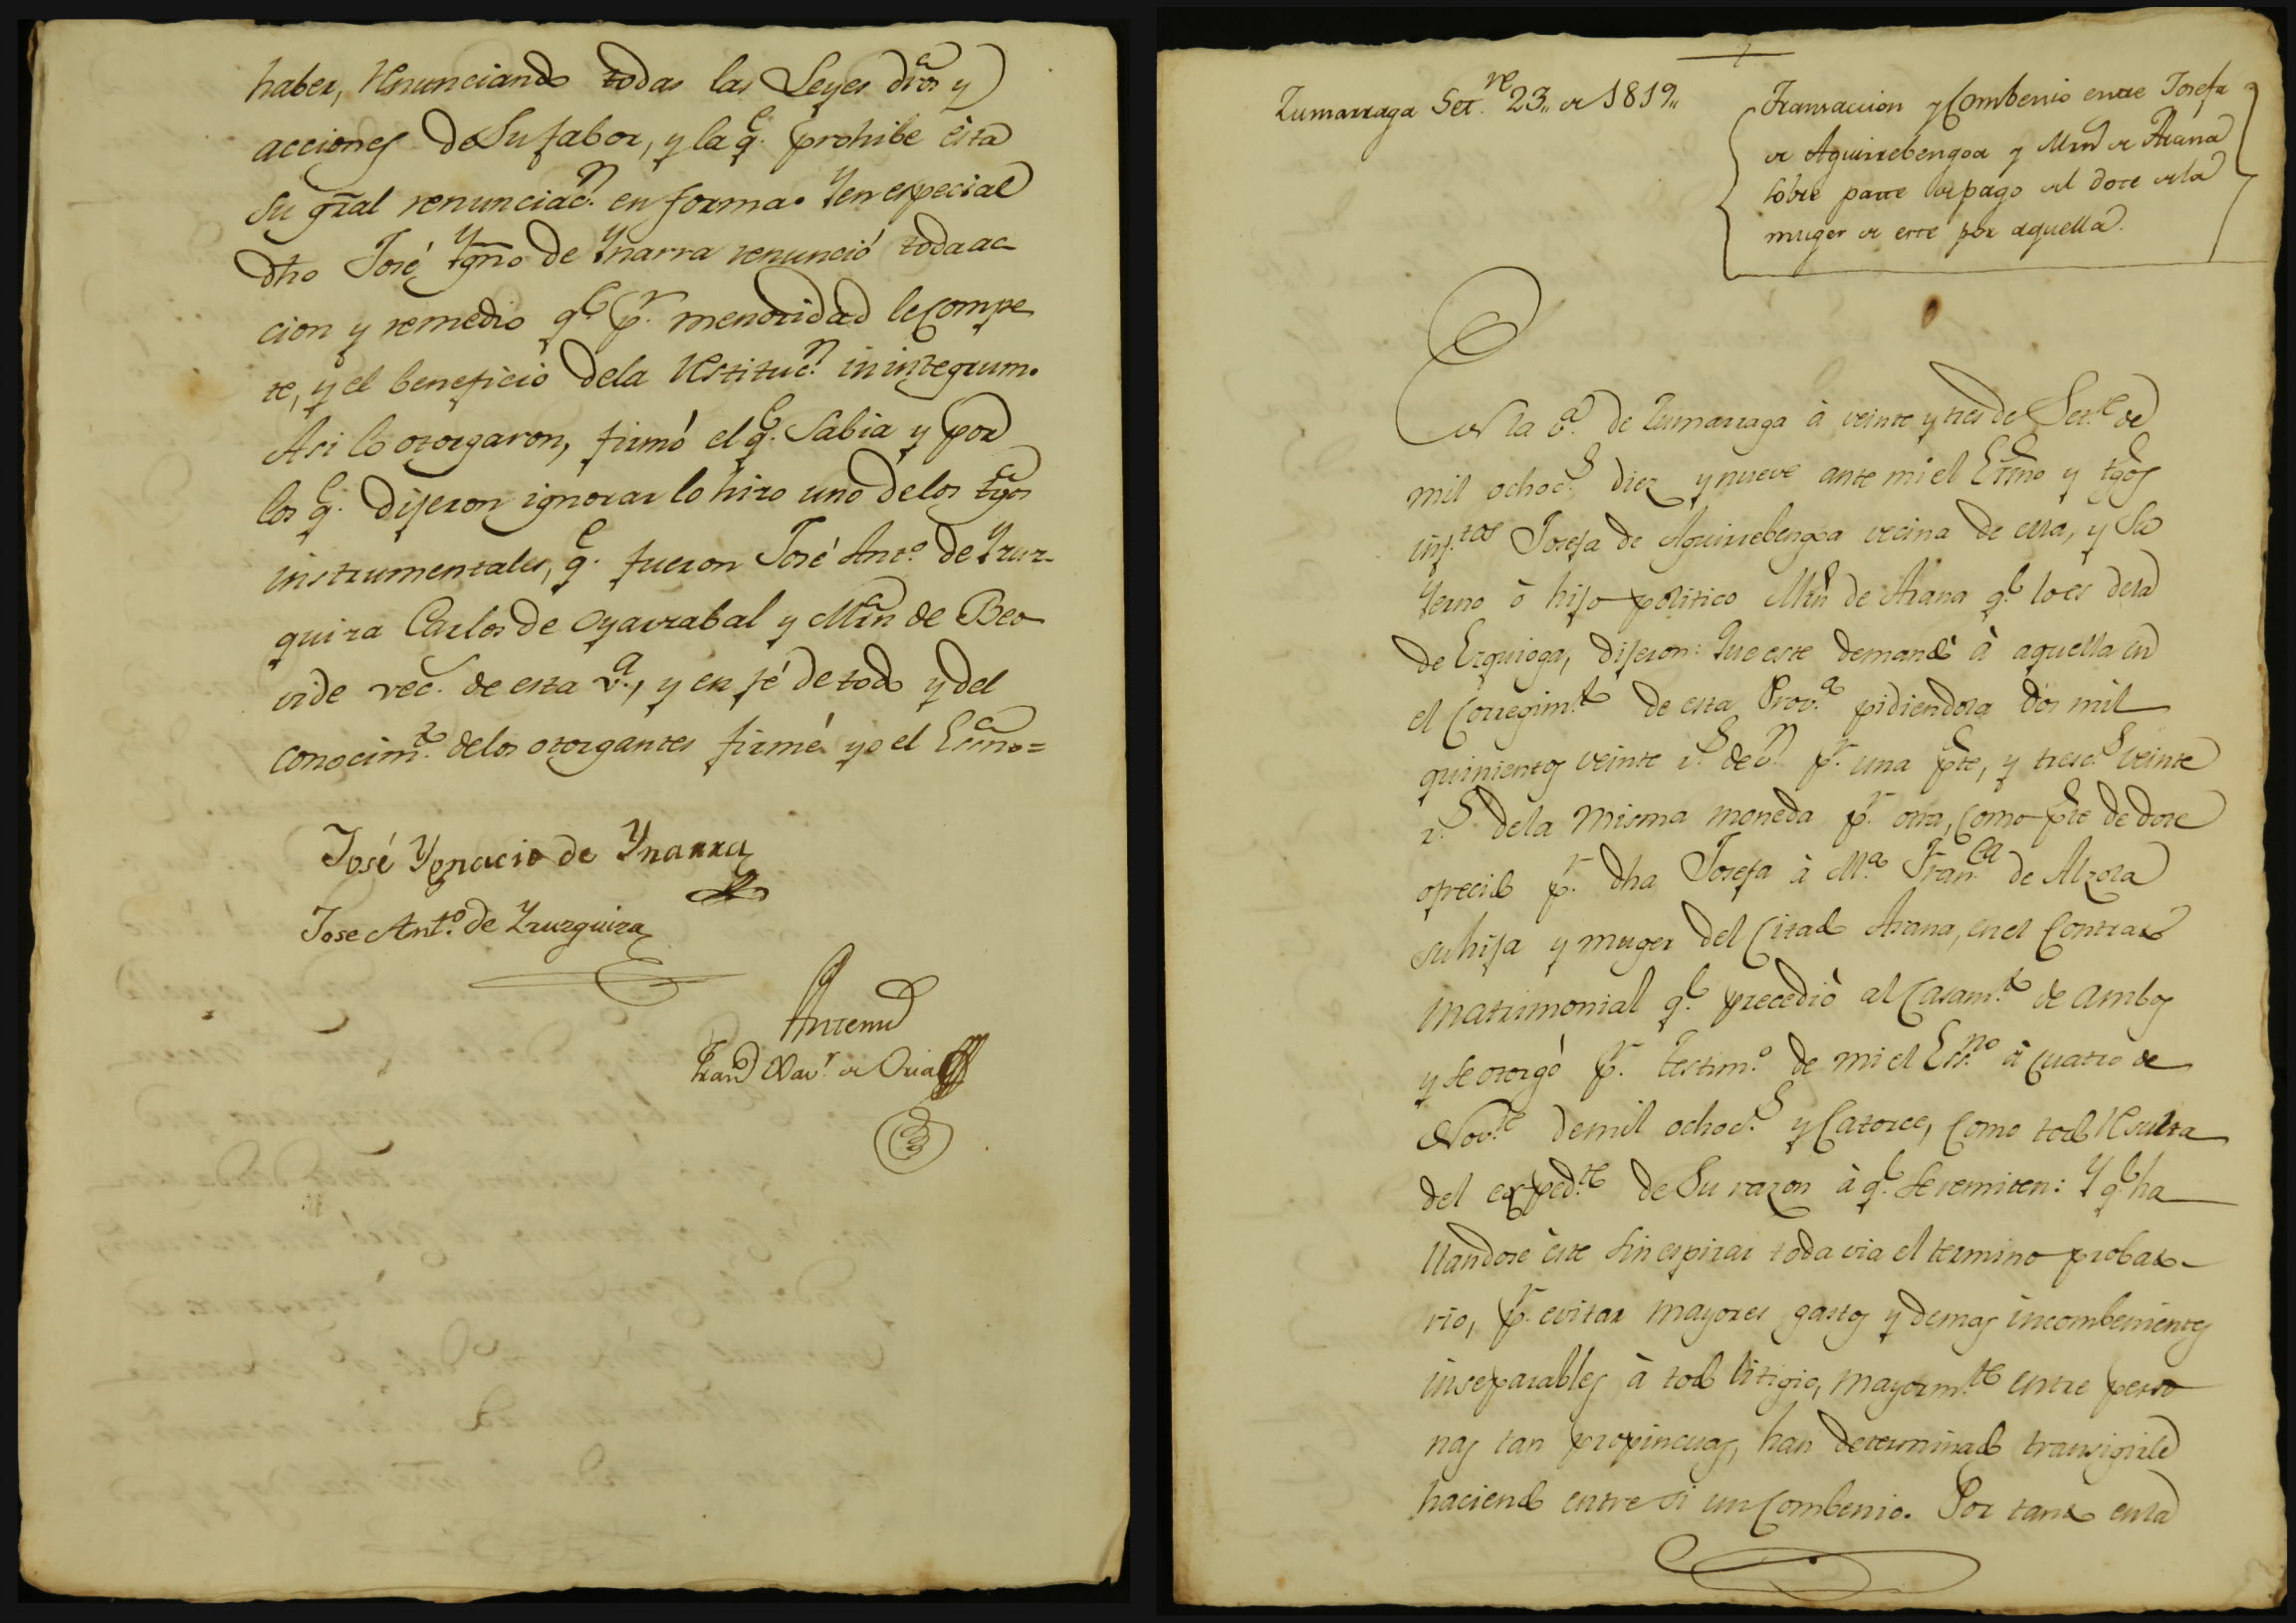 haber, renunciando todas las Leyes dros y
acciones de Su fabor, y la q.e prohibe esta
su gral renunciac.n en forma. Y en especial
dho José Ygno de Ynarra renunció toda ac
cion y remedio q.e p.r menoridad le compe
te, y el beneficio dela restituc.n in integrum.
Asi lo otorgaron, firmó el q.e Sabia y por
los q.e dijeron ignorar lo hizo uno delos tgos
instrumentales, q.e fueron José Ant.o de Yzur-
quiza Carlos de Oyarzabal y Mrn de Beo
vide vec.s de esta v.a, y en fé de todo y del
conocim.to delos otorgantes firmé yo el Esno=
José Ygnacio de Ynarra
Jose Ant.o de Yzurguiza
Antemi
Fran.co Xav.r de Oria
Zumarraga Set.re 23,, de 1819,,
Transaccion y Combenio entre Josefa
de Aguirrebengoa y Mrn de Arana
sobre parte de pago del dote dela
muger de este por aquella.
En la v.a de Zumarraga à veinte y tres de Set.re de
mil ochoc.s diez y nueve ante mi el Esno y tgos
inf.tos Josefa de Aguirrebengoa vecina de ella, y Su
Yerno ò hijo politico Mrn de Arana q.e lo es dela
de Ezquioga, dijeron: Que este demandò à aquella en
el Corregim.to de esta Prov.a pidiendola dos mil
quinientos veinte r.s de v.n p.r una pte, y tresc.s veinte
r.s dela misma moneda p.r otra, como pte de dote
ofrecido p.r dha Josefa à M.a Fran.ca de Alzola
su hija y muger del Citado Arana, en el Contrato
matrimonial q.e precediò al Casam.to de ambos
y se otorgó p.r testim.o de mi el Es.no à cuatro de
Nov.re de mil ochoc.s y Catorce, como todo resulta
del exped.te de Su razon à q.e se remiten: Y q.e ha
llandose este sin espirar toda via el termino probato-
rio, p.r evitar mayores gastos y demas incombenientes
inseparables à todo litigio, mayorm.te entre perso
nas tan propincuas, han determinado transigirle
haciendo entre si un Combenio. Por tanto en la